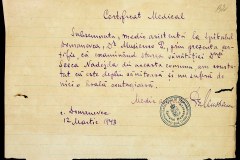 Certificat Medical
Subsemnatu, medic asistent la Spitalul
Domanevca, Dr. Mușienco P., prin prezenta
certific, că examinând starea sănătății D-nei
Serca Nadejda din această comună am constatat
că este deplin sănătoasă și nu suferă de
nici o boală contagioasă.
Medic
c. Domanevca
12 Martie 1943